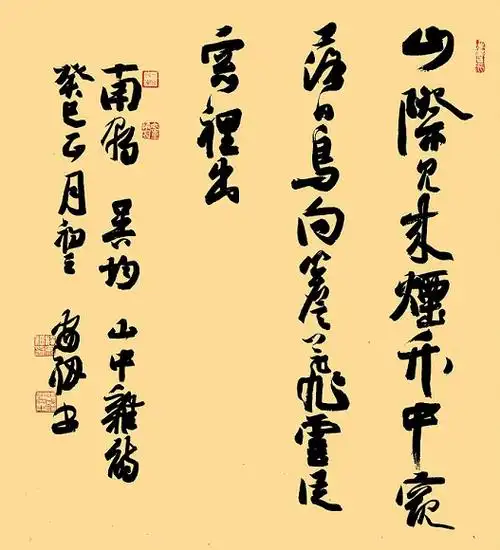 山際見來煙竹中窺
落日鳥向簷上飛雲從
窓裡出
南朝 吳均 山中雜詩
癸巳正月初 書